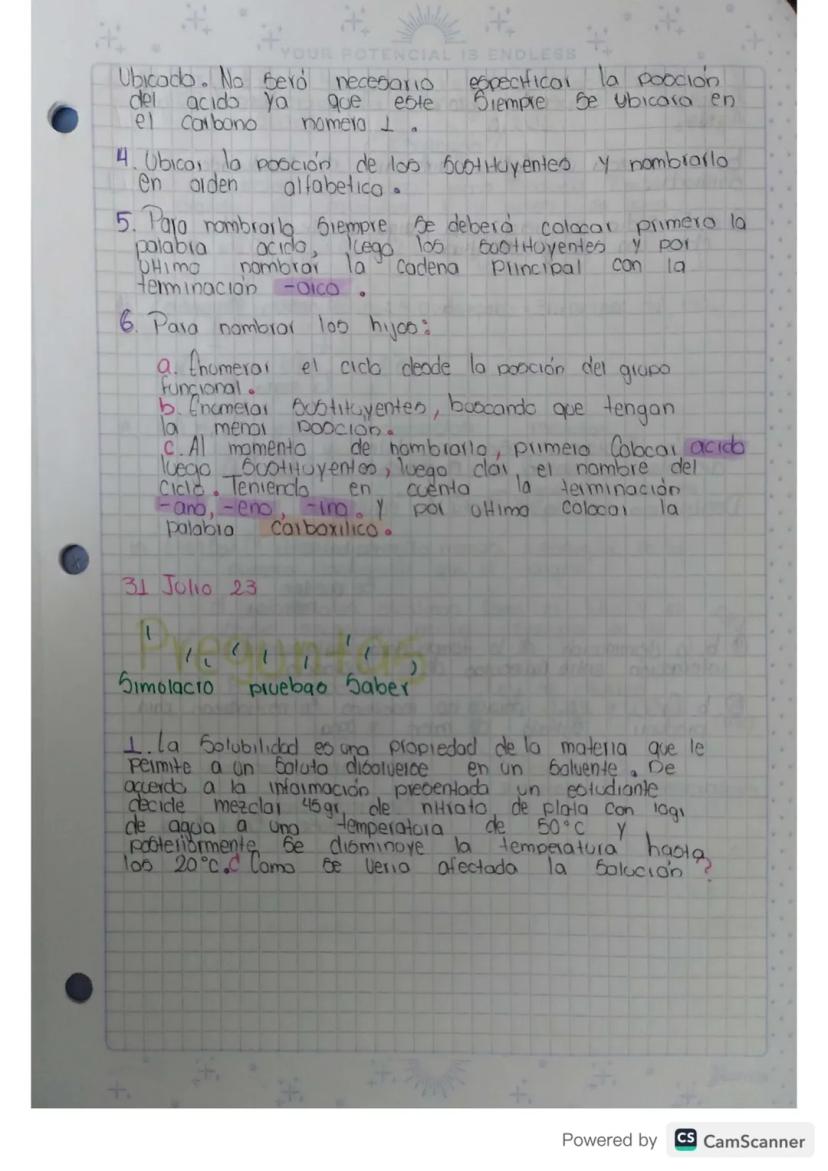 YOUR POTENCIAL IS ENDLESS
Ubicado. No será necesario especificar la posición
del acido ya que este siempre se ubicara en
el carbono numero 1.
4. Ubicar la posición de los sustituyentes y nombrarlo
en orden alfabetico.
5. Para nombrarlo siempre se deberá colocar primero la
palabra acido, luego los sustituyentes y por
ultimo nombrar la cadena principal con la
terminación -oico.
6. Para nombrar los
a. Enumerar el ciclo desde la posición del grupo
funcional.
b. Enumerar sustituyentes, buscando que tengan
la menor posción.
c. Al momento de nombrarlo, primero Colocar acido
luego sustituyentes, luego dar el nombre del
ciclo. Teniendo en cuenta la terminación
-ano, -eno, -ino. Y por ultimo colocar la
palabra carboxilico.
31 Julio 23
Preguntas
Simulacro pruebas Saber
1. la Solubilidad es una propiedad de la materia que le
permite a un Soluto disolverse en un Solvente. De
acuerdo a la información presentada un estudiante
decide mezclar 45gr de nitrato de plata con 10gr
de agua a una temperatura de 50°C y
posteriormente se disminuye la temperatura hasta
los 20°C. ¿Como se veria afectada la solución?
Powered by CS CamScanner